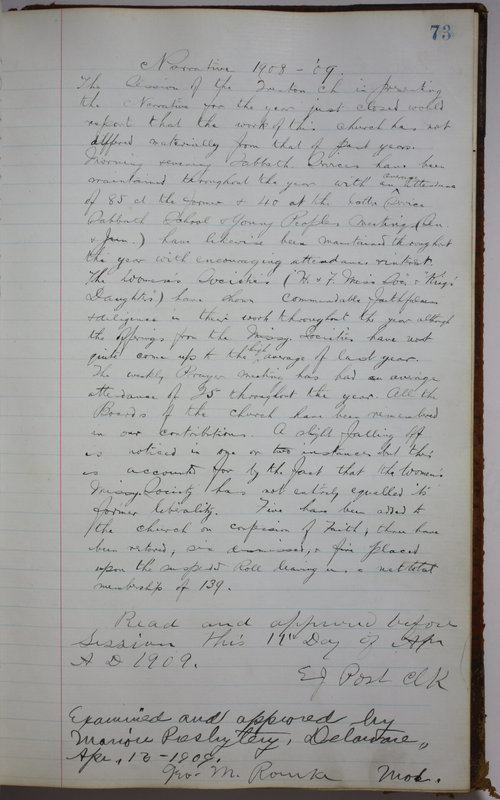 73
Narrative 1908 - '09.
The Session of the Trenton Ch in presenting
the Narrative for the year just closed would
report that the work of this church has not
differed materially from that of past years.
Morning & evening Sabbath Services have been
maintained throughout the year with an average attendance
of 85 at the former & 40 at the latter Service
Sabbath School & Young Peoples meetings (Sen.
& Jun.) have likewise been maintained throughout
the year with encouraging attendance & interest.
The Womens Societies (H. & F. Miss Soc. & "King's
Daughters) have shown commendable faithfulness
& diligence in their work throughout the year although
the offerings from the Missy. Societies have not
quite come up to the high average of last year.
The weekly Prayer meeting has had an average
attendance of 25 throughout the year. All the
Boards of the church have been remembered
in our contributions. A slight falling off
is noticed in one or two instances but this
is accounted for by the fact that the Women's
Missy. Society has not entirely equalled its
former liberality. Five has been added to
the church on confession of Faith, three have
been restored, six dismissed, & five placed
upon the suspend Roll leaving us a net total
membership of 139.
Read and approved before
Session this 11th Day of Apr
A D 1909.
E J Post Clk
Examined and approved by
Marion Presbytery, Delaware,
Apr., 13 - 1909.
Geo. M. Rourke Mod.